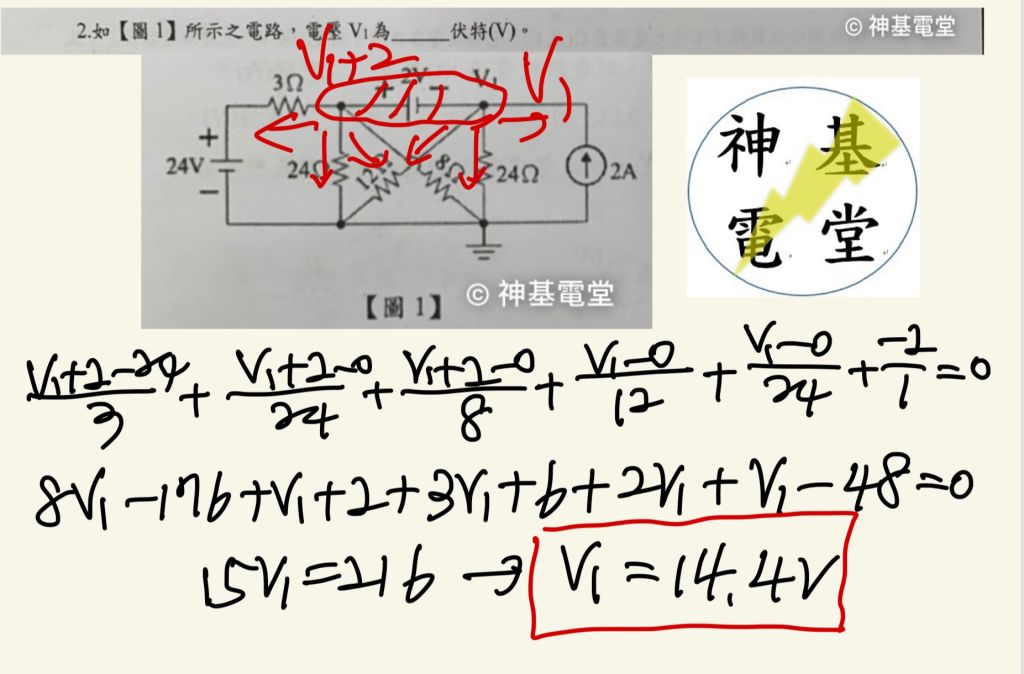 2.如【圖1】所示之電路,電壓V₁為____伏特(V)。
© 神基電堂
V₁+2
V₁
3Ω
+ 2V −
V₁
+
24V
−
24Ω
12Ω
8Ω
24Ω
2A
【圖1】
© 神基電堂
神 基
電 堂
(V₁+2−24)/3 + (V₁+2−0)/24 + (V₁+2−0)/8 + (V₁−0)/12 + (V₁−0)/24 + (−2)/1 = 0
8V₁−176+V₁+2+3V₁+6+2V₁+V₁−48=0
15V₁=216 → V₁=14.4V